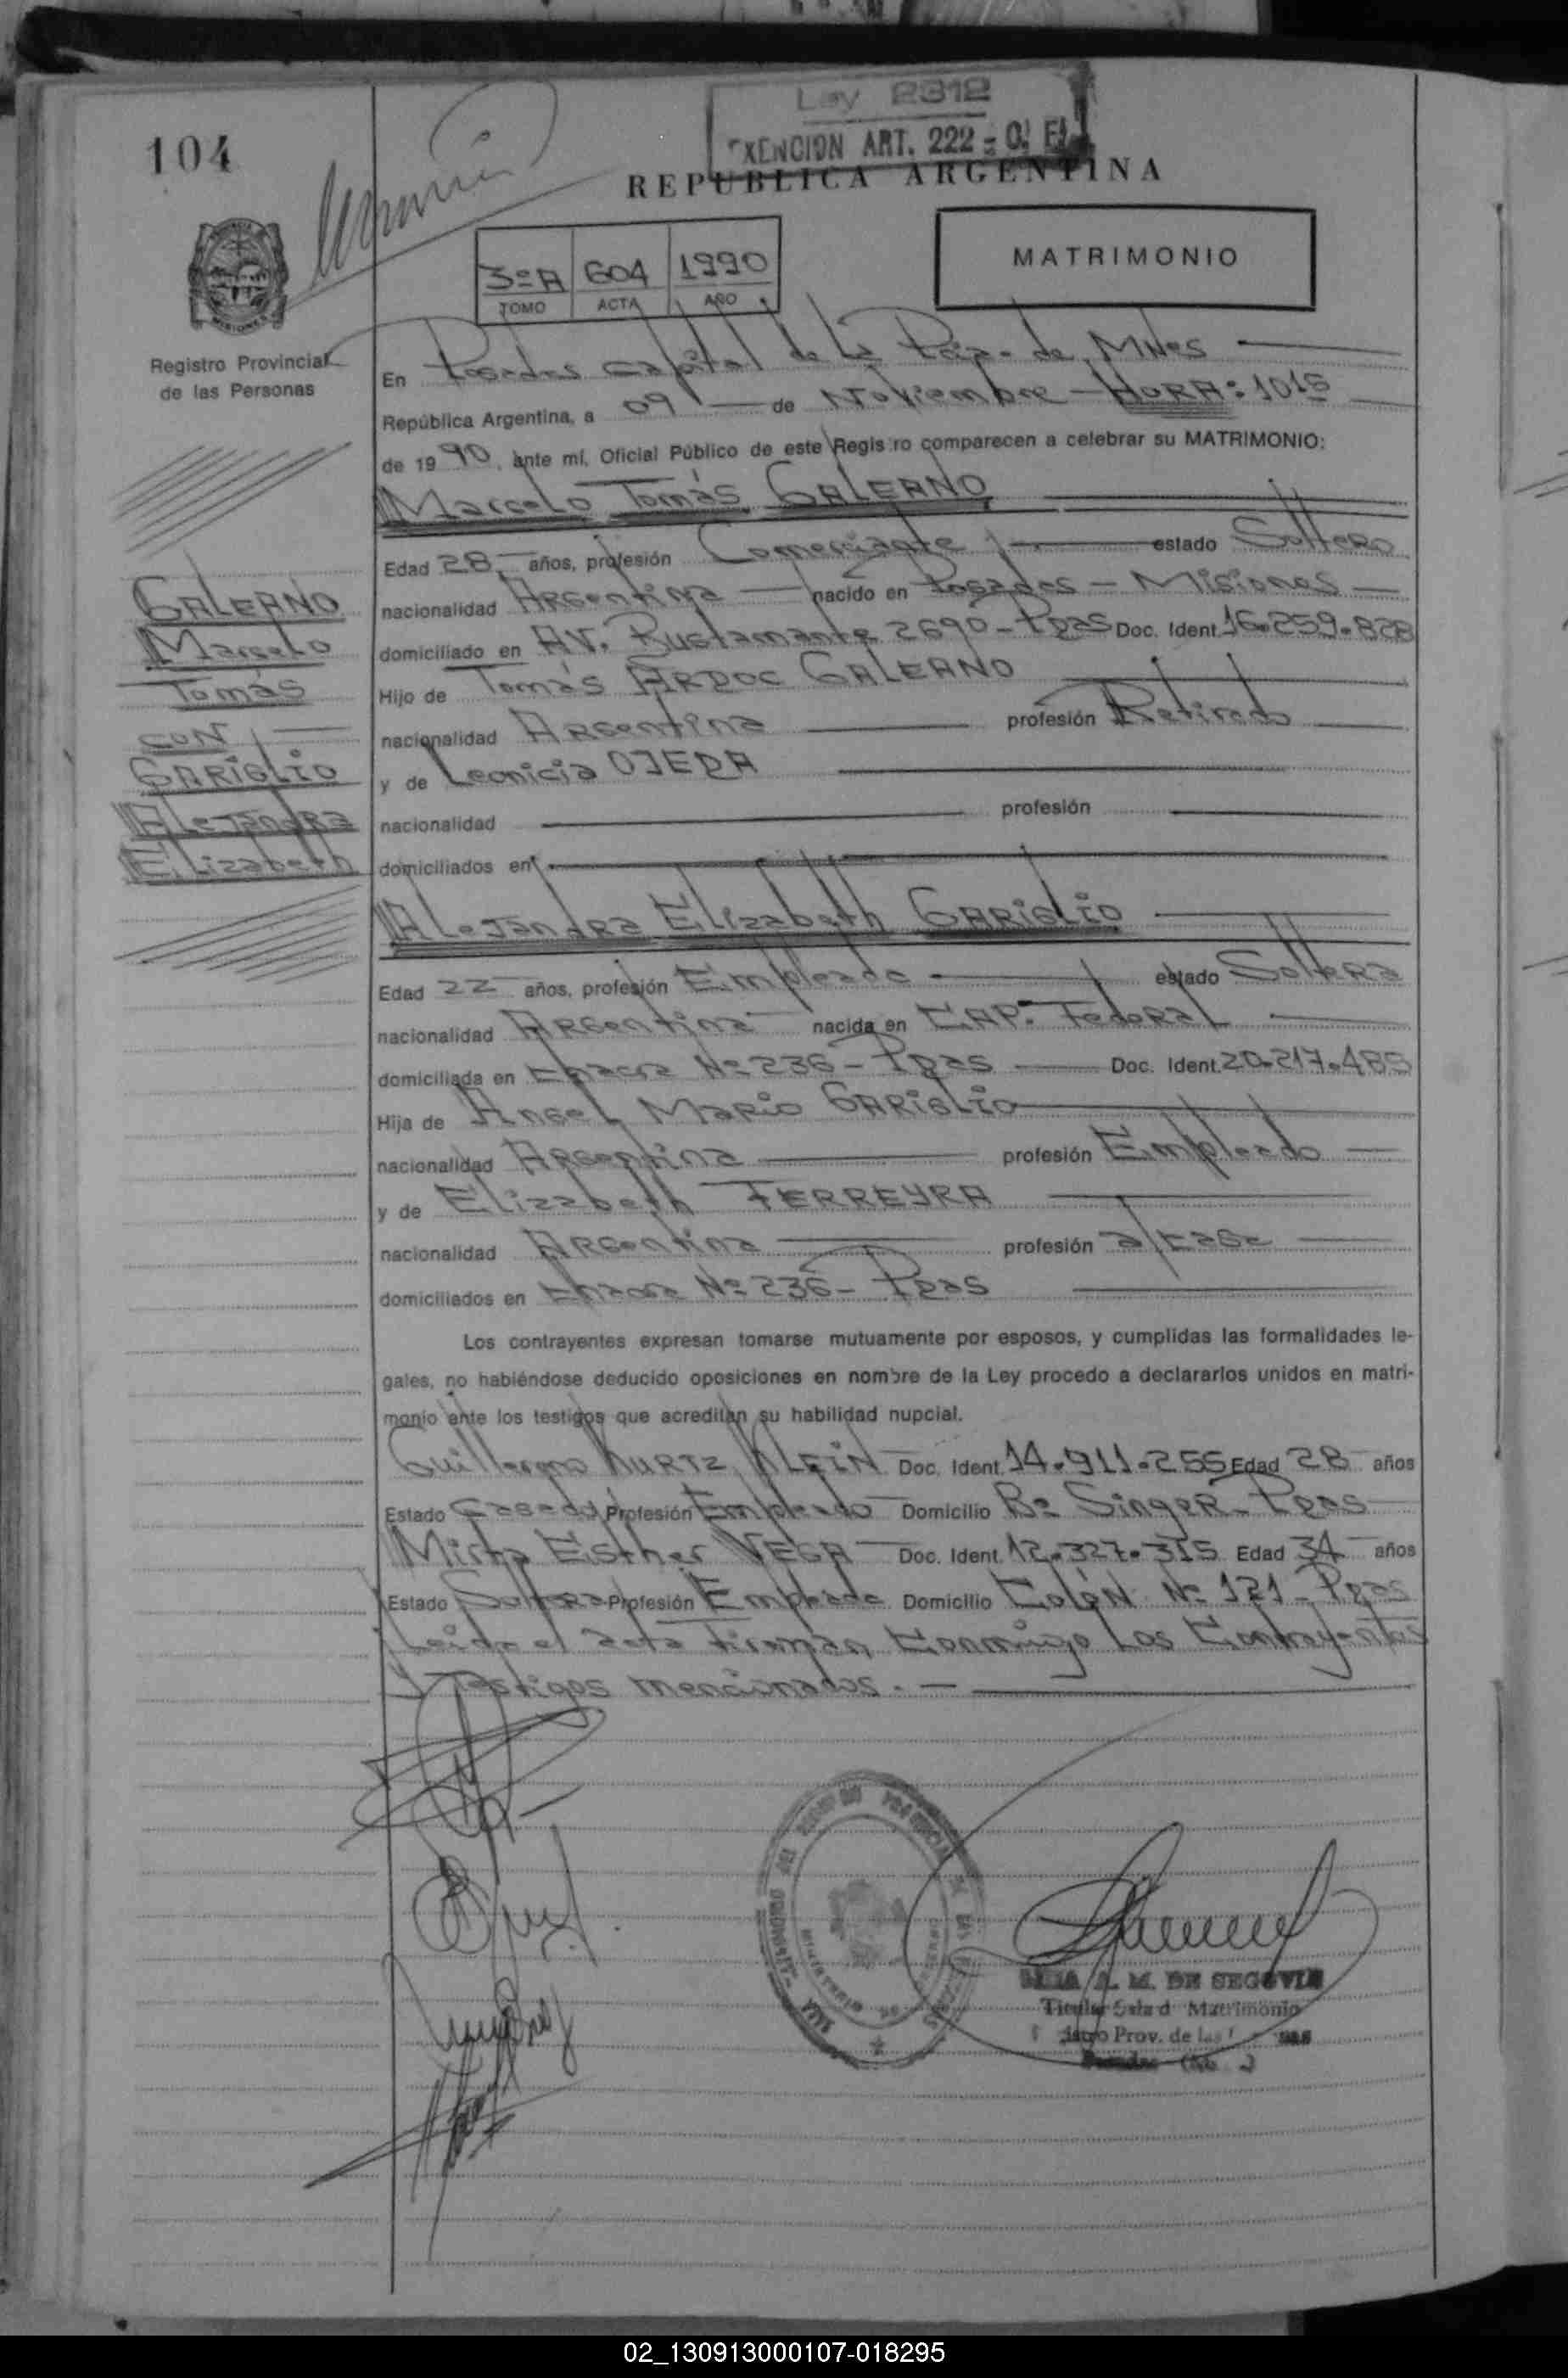 Ley 2312
EXENCION ART. 222
104
REPUBLICA ARGENTINA
3º A 604 1990
TOMO ACTA AÑO
MATRIMONIO
MISIONES
Registro Provincial
de las Personas
En Posadas Capital de la Pcia. de Mnes
República Argentina, a 09 de Noviembre - HORA: 1015
de 1990, ante mí, Oficial Público de este Registro comparecen a celebrar su MATRIMONIO:
Marcelo Tomás GALEANO
Edad 28 años, profesión Comerciante estado Soltero
nacionalidad Argentina nacido en Posadas - Misiones
domiciliado en AV. Bustamante 2690 - Pdas Doc. Ident. 16.259.828
Hijo de Tomás ARDOC GALEANO
nacionalidad Argentina profesión Retirado
y de Leonicia OJEDA
nacionalidad profesión
domiciliados en
GALEANO
Marcelo
Tomás
CON
GARIGLIO
Alejandra
Elizabeth
Alejandra Elizabeth GARIGLIO
Edad 22 años, profesión Empleada estado Soltera
nacionalidad Argentina nacida en CAP. Federal
domiciliada en Chacra Nº 236 - Pdas Doc. Ident. 20.217.485
Hija de Angel Mario GARIGLIO
nacionalidad Argentina profesión Empleado
y de Elizabeth FERREYRA
nacionalidad Argentina profesión a/casa
domiciliados en Chacra Nº 236 - Pdas
Los contrayentes expresan tomarse mutuamente por esposos, y cumplidas las formalidades le-
gales, no habiéndose deducido oposiciones en nombre de la Ley procedo a declararlos unidos en matri-
monio ante los testigos que acreditan su habilidad nupcial.
Guillermo KURTZ KLEIN Doc. Ident. 14.911.255 Edad 28 años
Estado Casado Profesión Empleado Domicilio Bº Singer - Pdas
Mirta Esther VEGA Doc. Ident. 12.327.315 Edad 34 años
Estado Soltera Profesión Empleada Domicilio Colón Nº 121 - Pdas
Leida el acta firman conmigo los Contrayentes
y testigos mencionados. -
A. M. DE SEGOVIA
Titular Sala d Matrimonio
Prov. de las
Posadas
02_130913000107-018295